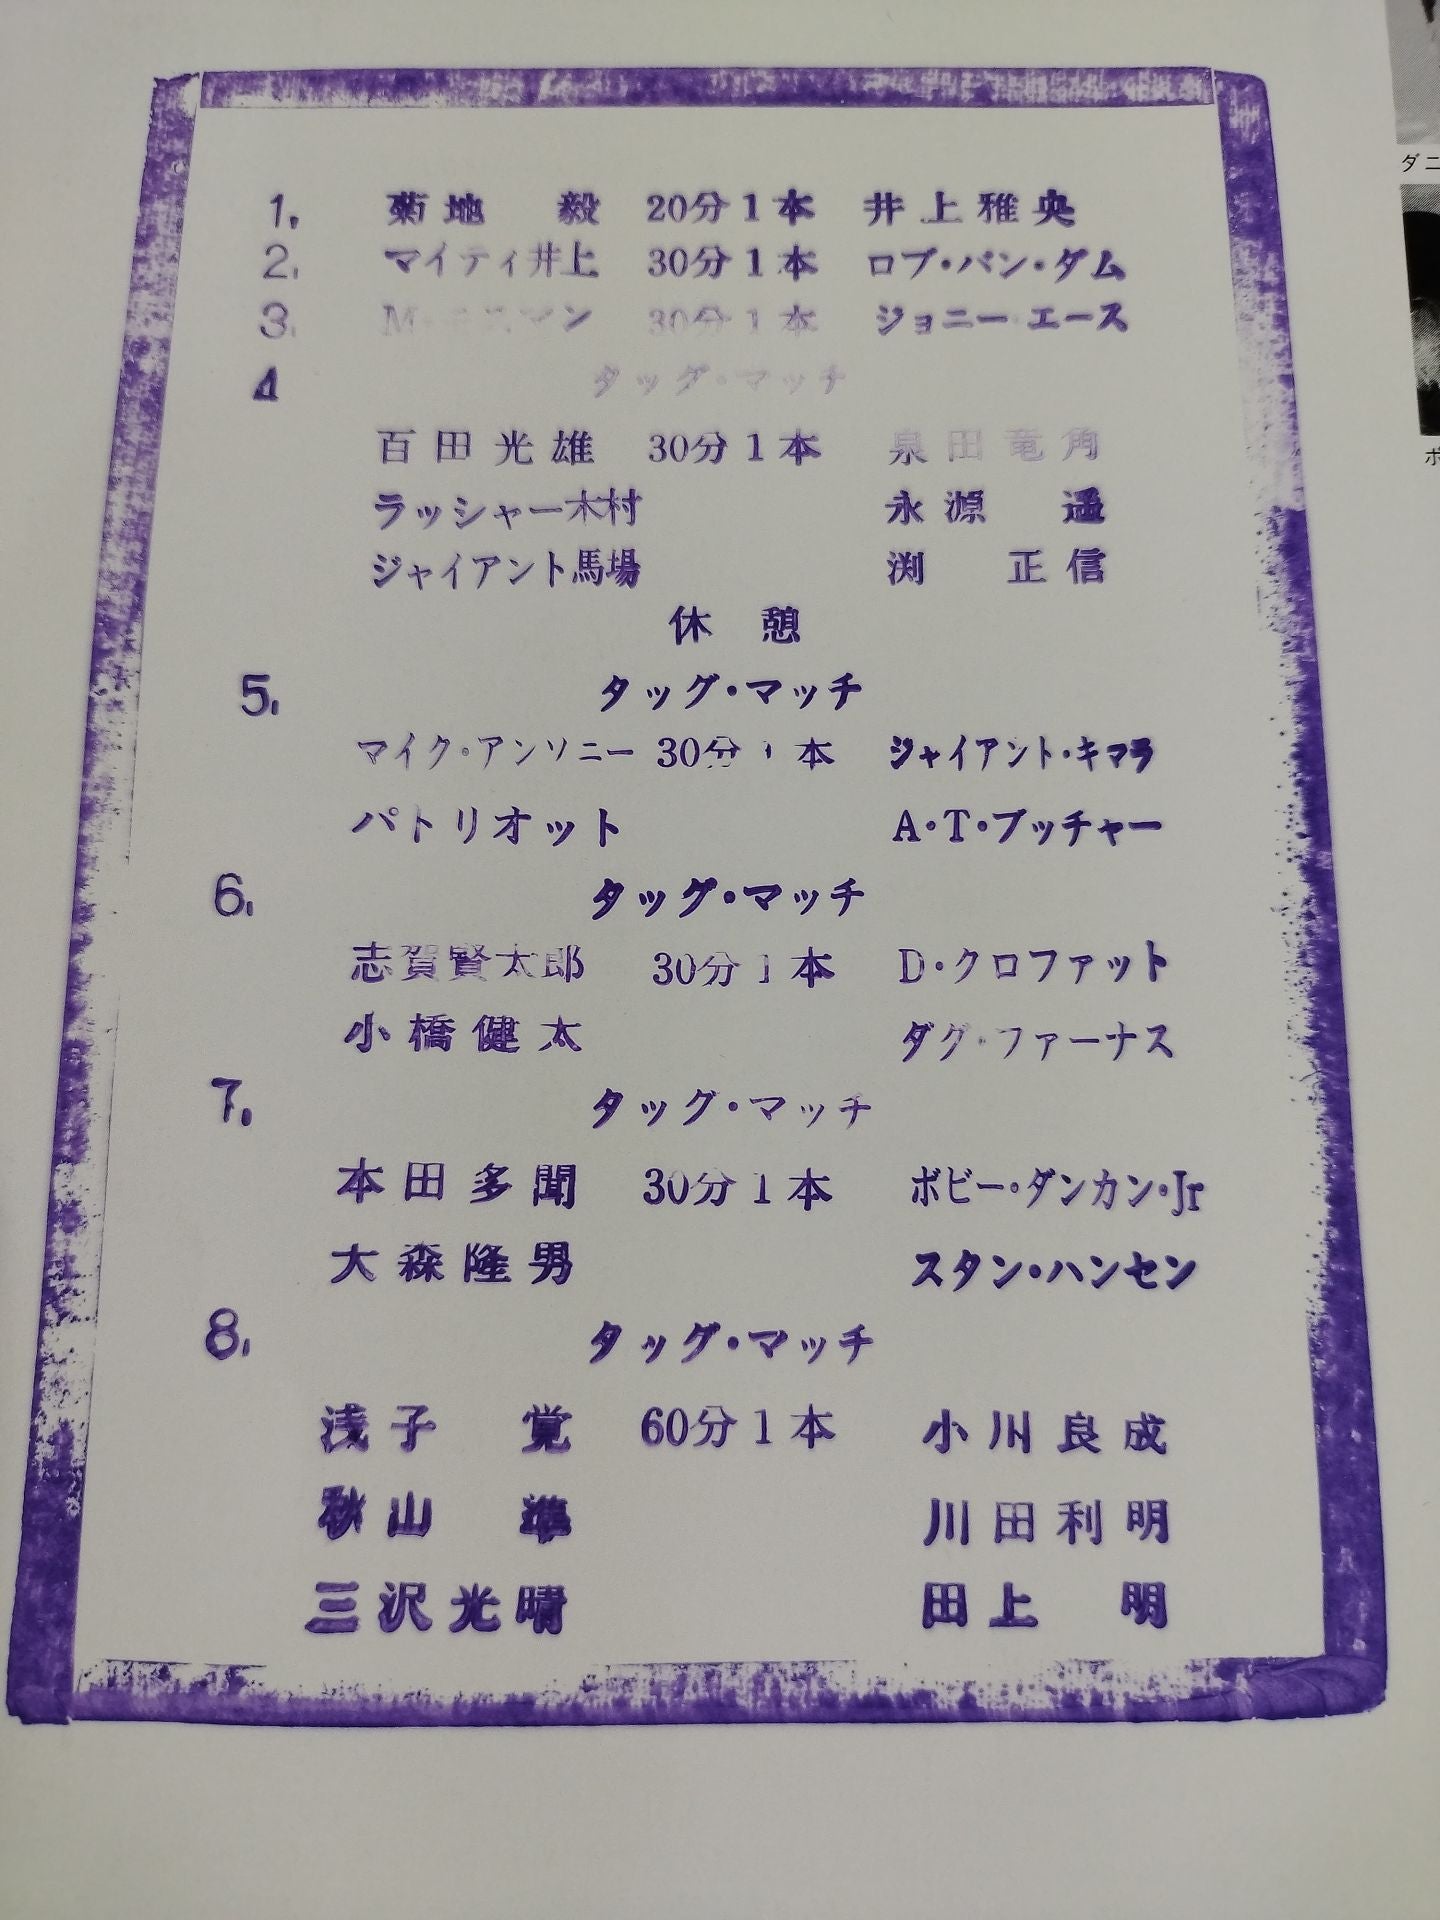 1. 菊地 毅 20分1本 井上雅央
2. マイティ井上 30分1本 ロブ・バン・ダム
3. M・モスマン 30分1本 ジョニー・エース
4 タッグ・マッチ
百田光雄 30分1本 泉田竜角
ラッシャー木村 永源 遥
ジャイアント馬場 渕 正信
休憩
5. タッグ・マッチ
マイク・アンソニー 30分1本 ジャイアント・キマラ
パトリオット A・T・ブッチャー
6. タッグ・マッチ
志賀賢太郎 30分1本 D・クロファット
小橋健太 ダグ・ファーナス
7. タッグ・マッチ
本田多聞 30分1本 ボビー・ダンカン・Jr
大森隆男 スタン・ハンセン
8. タッグ・マッチ
浅子 覚 60分1本 小川良成
秋山 準 川田利明
三沢光晴 田上 明
ダニ
ボ